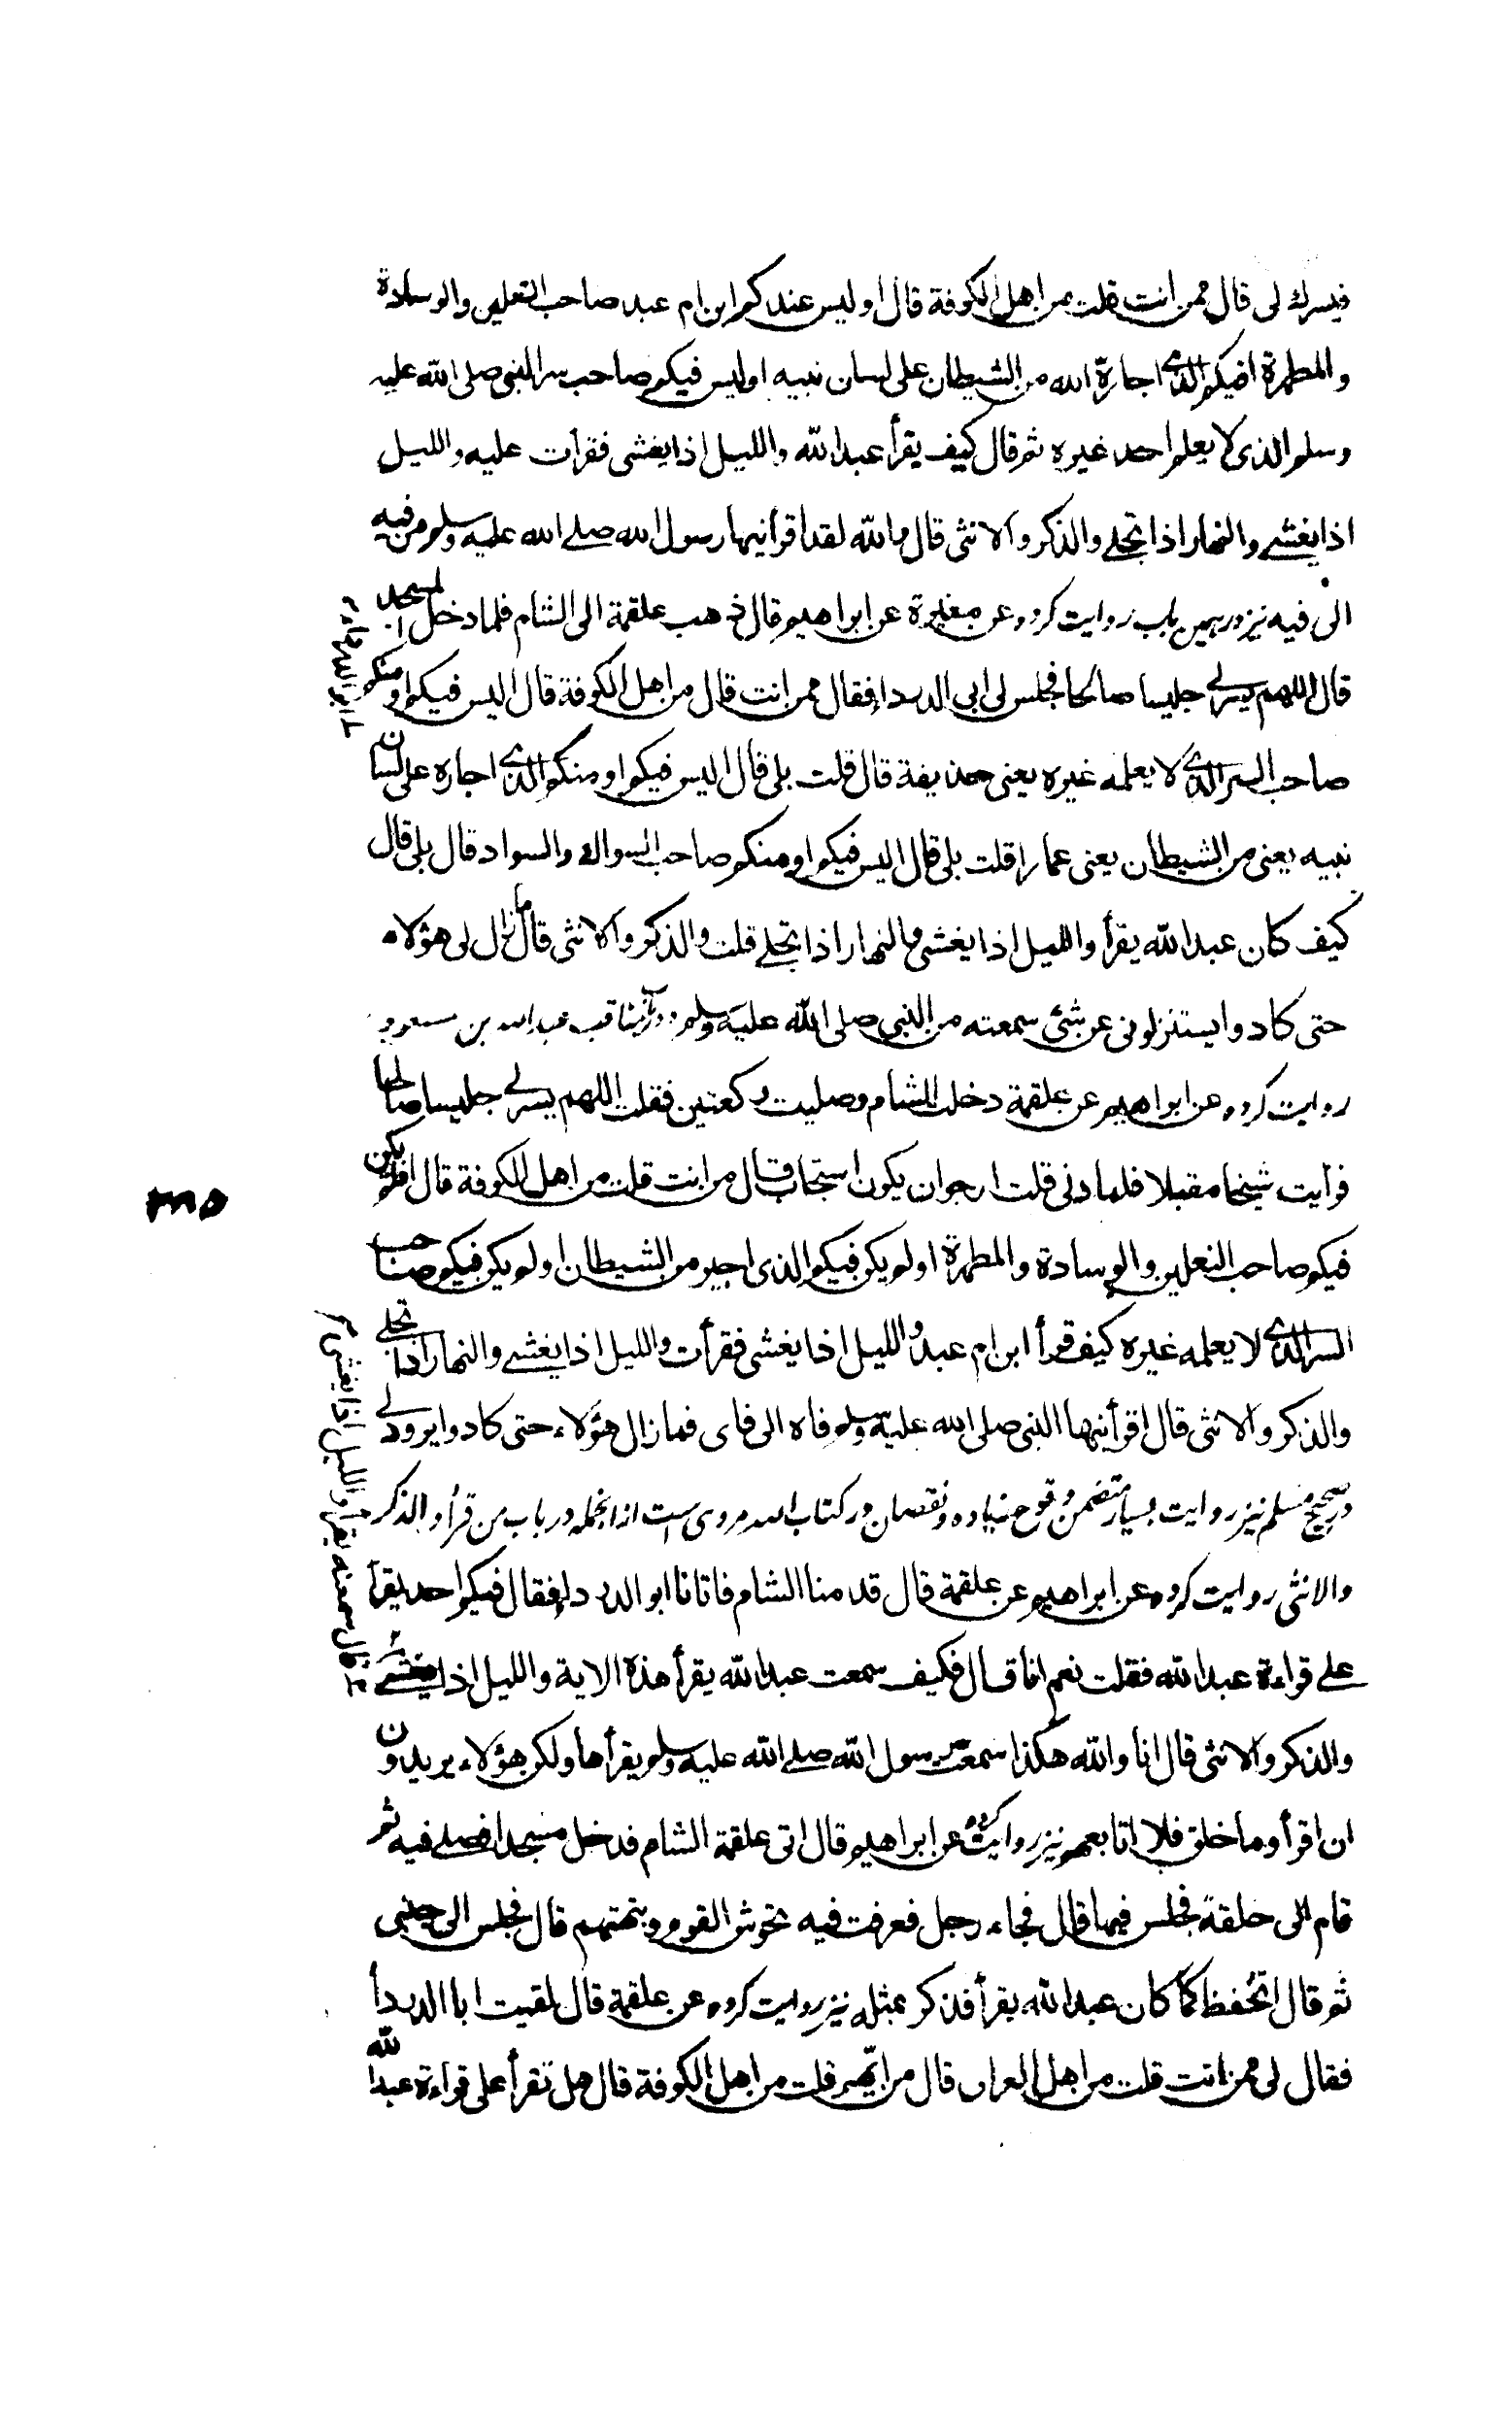 فيسرك لى قال ممن انت قلت من اهل الكوفة قال اوليس عندكم ابن ام عبد صاحب النعلين والوسادة
والمطهرة افيكم الذى اجاره الله من الشيطان على لسان نبيه اوليس فيكم صاحب سر النبى صلى الله عليه
وسلم الذى لا يعلم احد غيره ثم قال كيف يقرأ عبد الله والليل اذا يغشى فقرأت عليه والليل
اذا يغشى والنهار اذا تجلى والذكر والانثى قال والله لقد اقرأنيها رسول الله صلى الله عليه وسلم من فيه
الى فيه نيز درهمين باب روايت كرده عن مغيرة عن ابراهيم قال ذهب علقمة الى الشام فلما دخل المسجد
قال اللهم يسر لى جليسا صالحا فجلس لى ابى الدرداء فقال ممن انت قال من اهل الكوفة قال اليس فيكم او منكم
صاحب السر الذى لا يعلمه غيره يعنى حذيفة قال قلت بلى قال اليس فيكم او منكم الذى اجاره على لسان
نبيه يعنى من الشيطان يعنى عمارا قلت بلى قال اليس فيكم او منكم صاحب السواك والسواد قال بلى قال
كيف كان عبد الله يقرأ والليل اذا يغشى والنهار اذا تجلى قلت والذكر والانثى قال ما زال لى هؤلاء
حتى كادوا يستنزلونى عن شئ سمعته من النبى صلى الله عليه وسلم ودر مناقب عبد الله بن مسعود
روايت كرده عن ابراهيم عن علقمة دخلت الشام وصليت ركعتين فقلت اللهم يسر لى جليسا صالحا
فرأيت شيخا مقبلا فلما دنى قلت ارجو ان يكون استجاب قال من انت قلت من اهل الكوفة قال افلم يكن
فيكم صاحب النعلين والوسادة والمطهرة اولم يكن فيكم الذى اجير من الشيطان اولم يكن فيكم صاحب
السر الذى لا يعلمه غيره كيف قرأ ابن ام عبد والليل اذا يغشى فقرأت والليل اذا يغشى والنهار اذا تجلى
والذكر والانثى قال اقرأنيها النبى صلى الله عليه وسلم فاه الى فاى فما زال هؤلاء حتى كادوا يردونى
در صحيح مسلم نيز روايت بسيار متضمن وقوع زياده ونقصان در كتاب الله مروى است ازانجمله در باب من قرأ والذكر
والانثى روايت كرده عن ابراهيم عن علقمة قال قدمنا الشام فاتانا ابو الدرداء فقال فيكم احد يقرأ
على قراءة عبد الله فقلت نعم انا قال فكيف سمعت عبد الله يقرأ هذه الاية والليل اذا يغشى
قال سمعته يقرأ والليل اذا يغشى
والذكر والانثى قال انا والله هكذا سمعت رسول الله صلى الله عليه وسلم يقرأها ولكن هؤلاء يريدون
ان اقرأ وما خلق فلا اتابعهم نيز روايت كرده عن ابراهيم قال اتى علقمة الشام فدخل مسجدا فصلى فيه ثم
قام الى حلقة فجلس فيها قال فجاء رجل فعرفت فيه تحوش القوم وهيئتهم قال فجلس الى جنبى
ثم قال اتحفظ كما كان عبد الله يقرأ فذكر بمثله نيز روايت كرده عن علقمة قال لقيت ابا الدرداء
فقال لى ممن انت قلت من اهل العراق قال من ايهم قلت من اهل الكوفة قال هل تقرأ على قراءة عبد الله